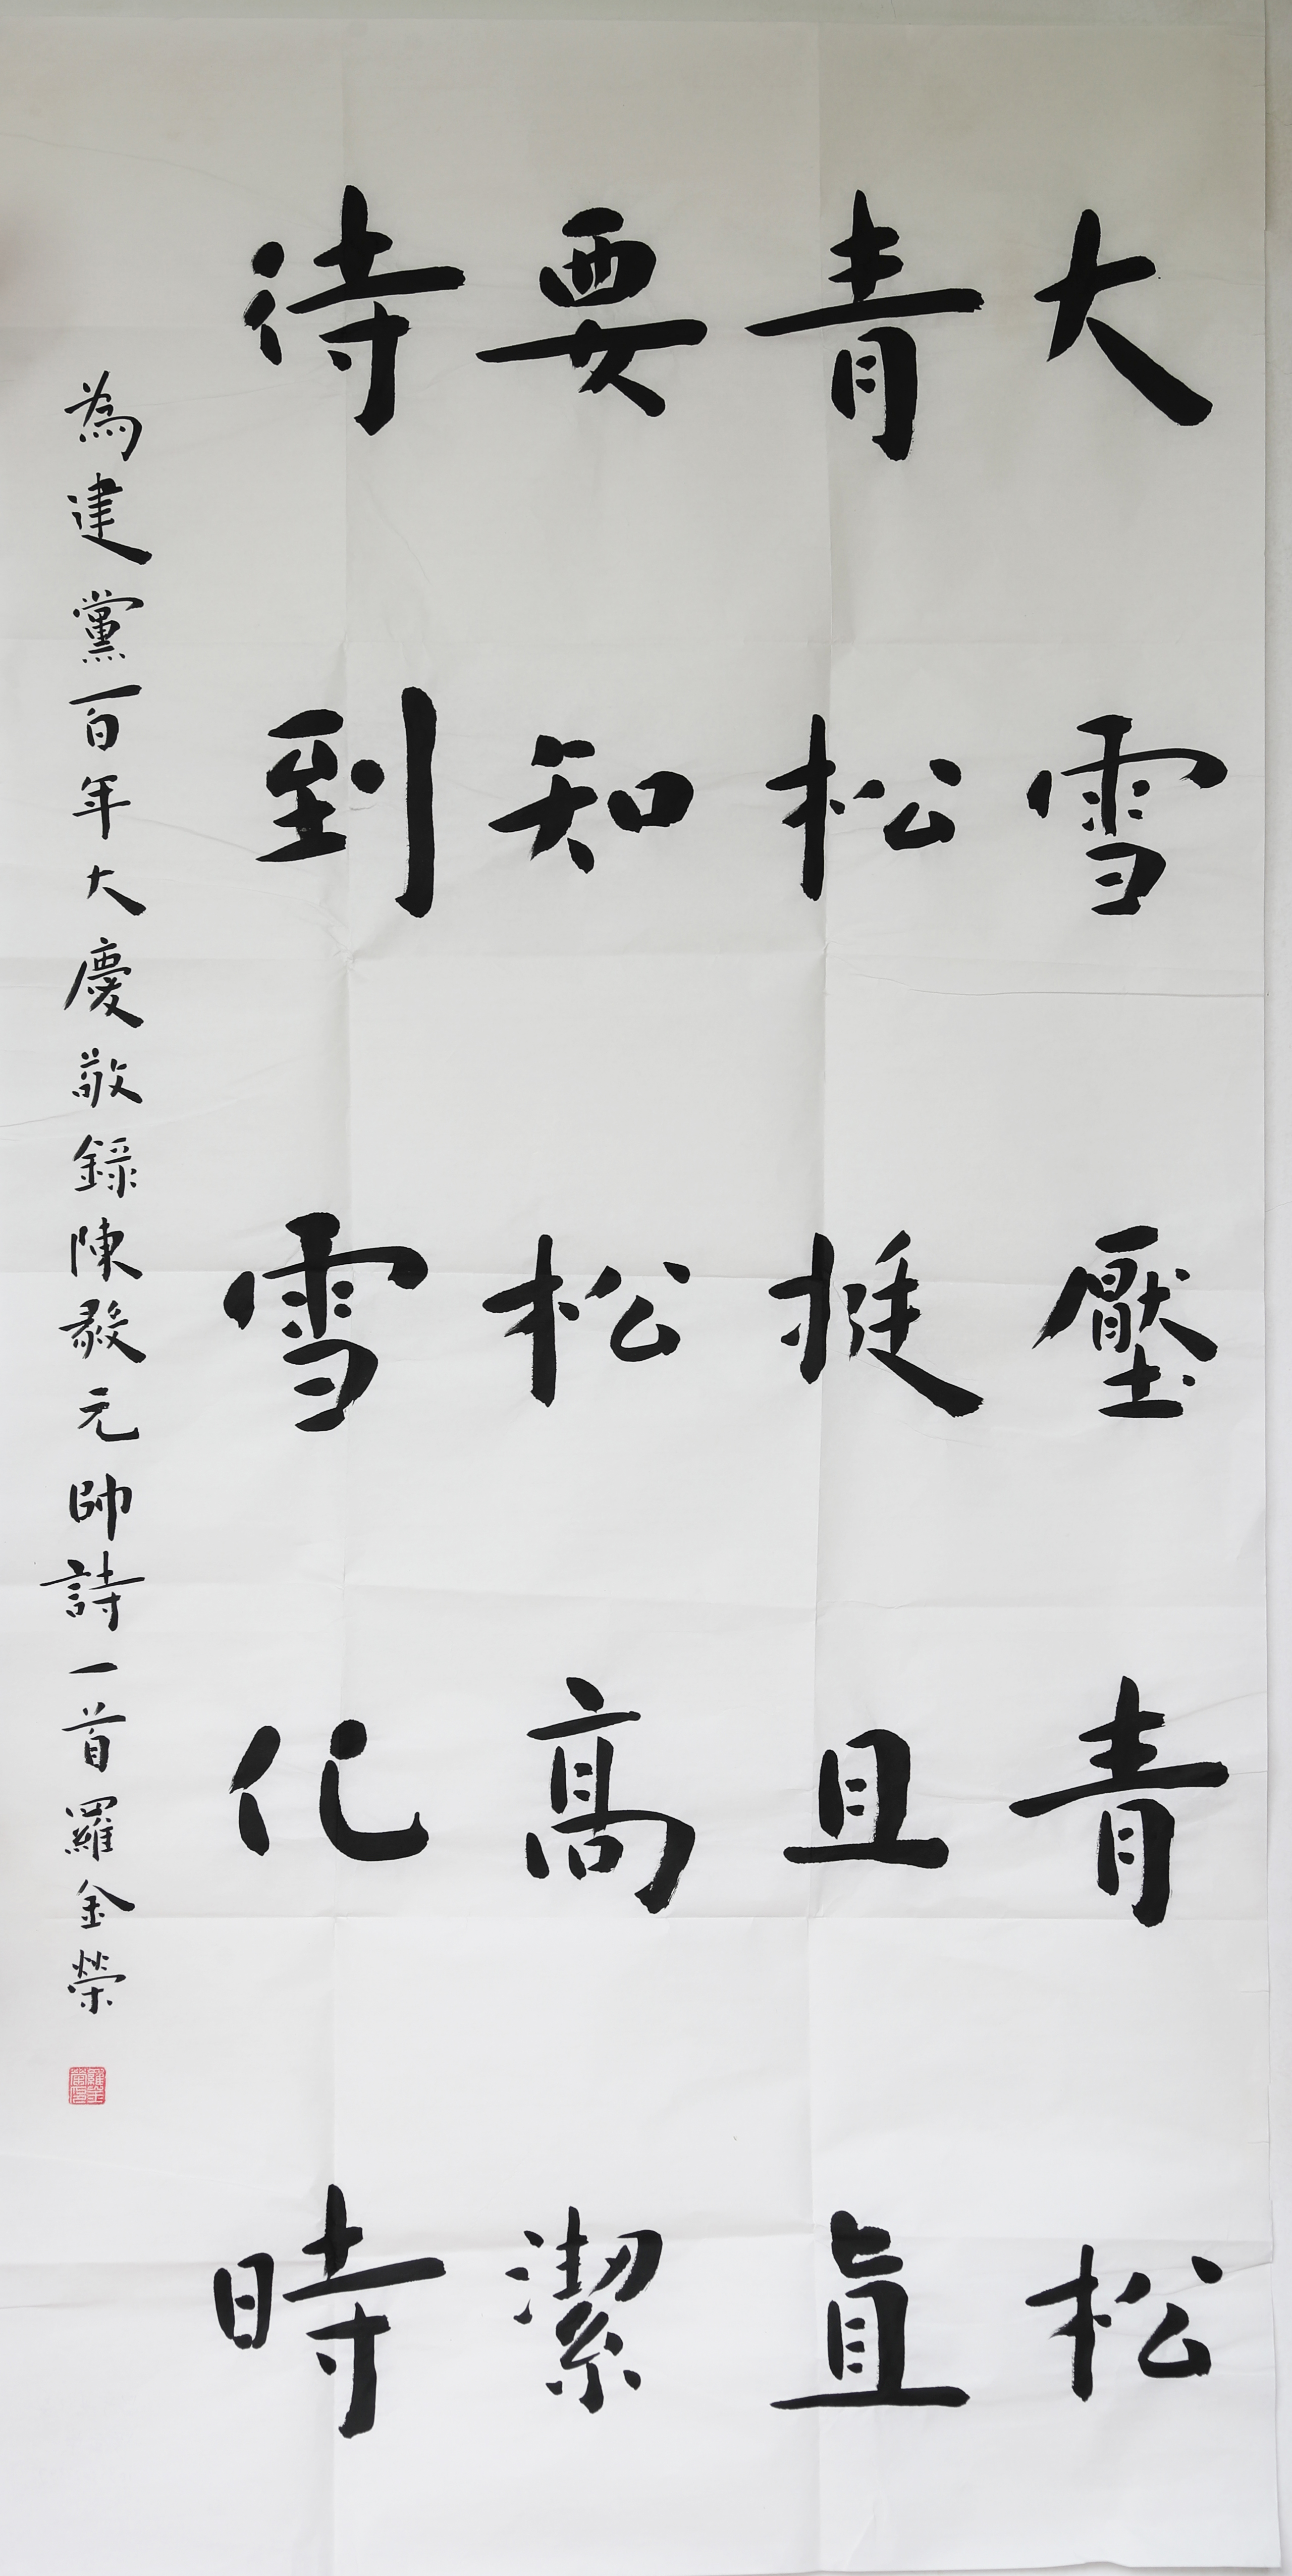 大雪壓青松
青松挺且直
要知松高潔
待到雪化時
為建黨百年大慶敬錄陳毅元帥詩一首羅金榮